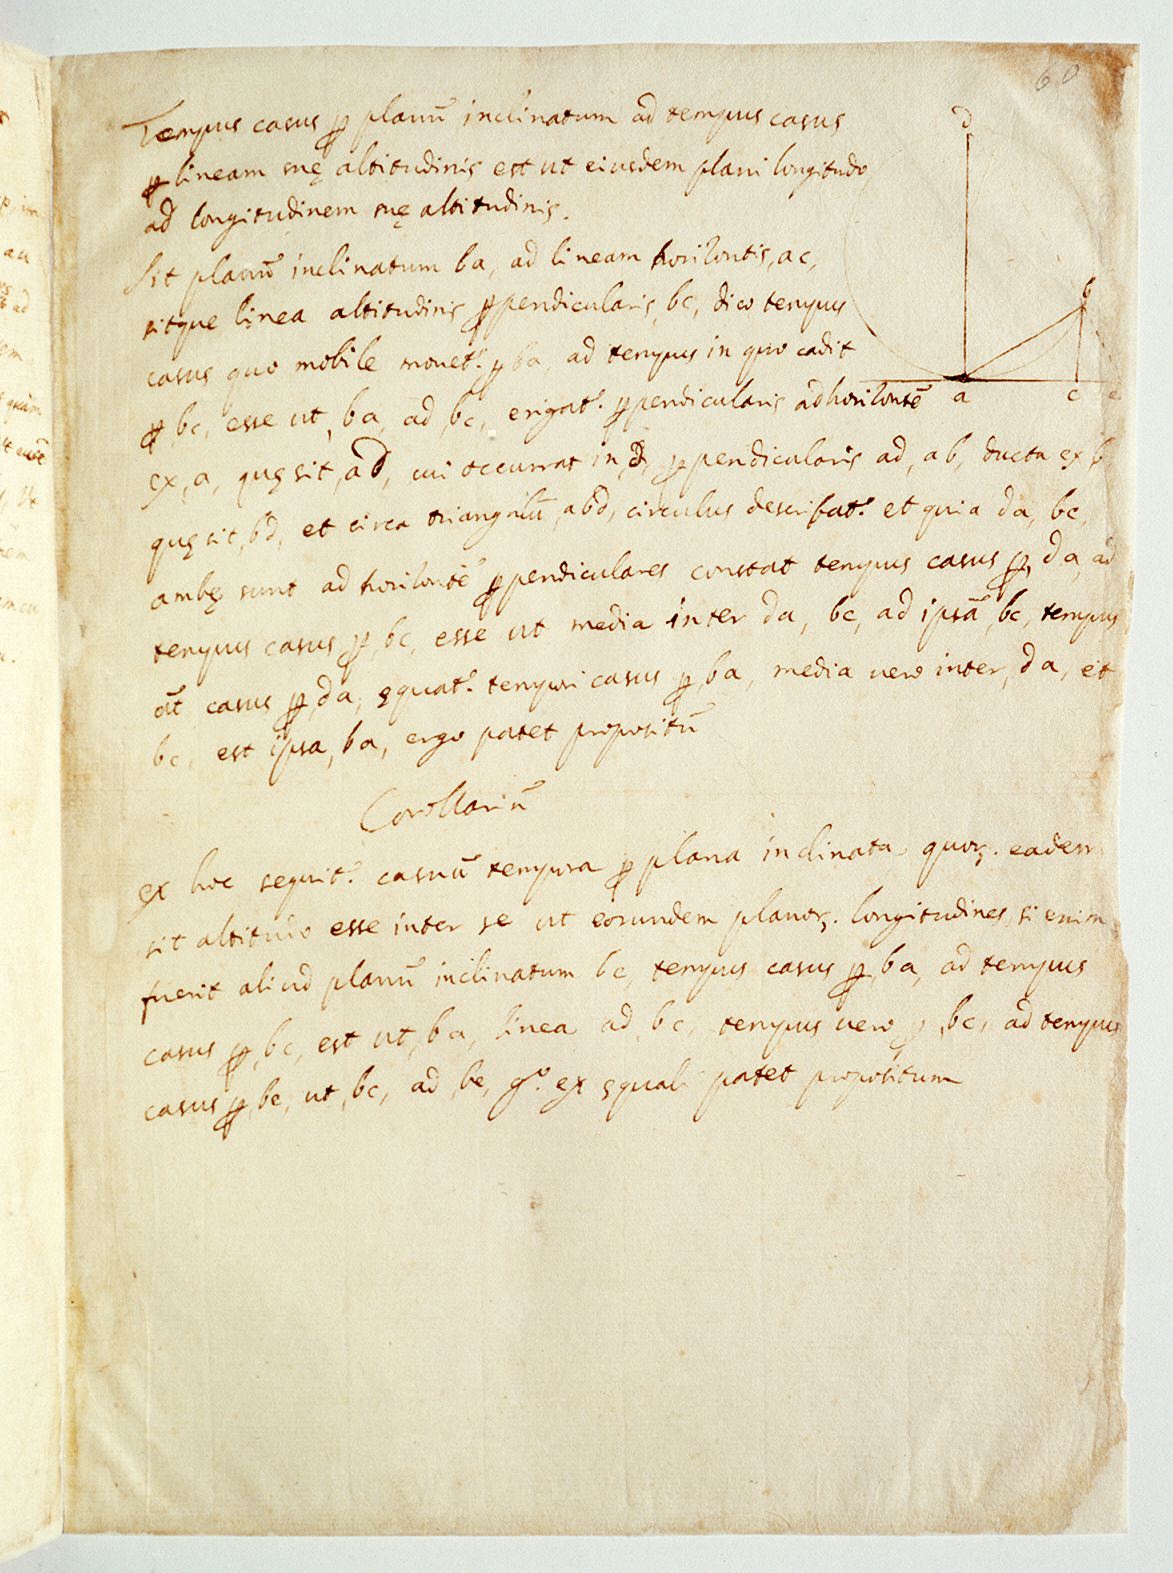 60
Tempus casus ꝑ planū inclinatum ad tempus casus
ꝑ lineam suę altitudinis est ut eiusdem plani longitudo
ad longitudinem suę altitudinis.
Sit planū inclinatum ba, ad lineam horizontis, ac,
sitque linea altitudinis ꝑpendicularis, bc, dico tempus
casus quo mobile mouet.^r ꝑ ba, ad tempus in quo cadit
ꝑ bc, esse ut, ba, ad, bc, erigat.^r ꝑpendicularis ad horizontē
ex, a, quę sit, ad, cui occurrat in, d, ꝑpendicularis ad, ab, ducta ex b
quę sit, bd, et circa triangulū, abd, circulus describat.^r et quia da, bc,
ambę sunt ad horizontē ꝑpendiculares constat tempus casus ꝑ, da, ad
tempus casus ꝑ, bc, esse ut media inter da, bc, ad ipsā, bc, tempus
aūt casus ꝑ, da, ęquat.^r tempori casus ꝑ, ba, media uero inter, da, et
bc, est ipsa, ba, ergo patet propositū
Corollariū
ex hoc sequit.^r casuū tempora ꝑ plana inclinata quorꝫ. eadem
sit altitudo esse inter se ut eorundem planorꝫ. longitudines, si enim
fuerit aliud planū inclinatum be, tempus casus ꝑ, ba, ad tempus
casus ꝑ, bc, est ut, ba, linea ad, bc, tempus uero ꝑ, bc, ad tempus
casus ꝑ, be, ut, bc, ad, be, g.^o ex ęquali patet propositum
d
b
a c e